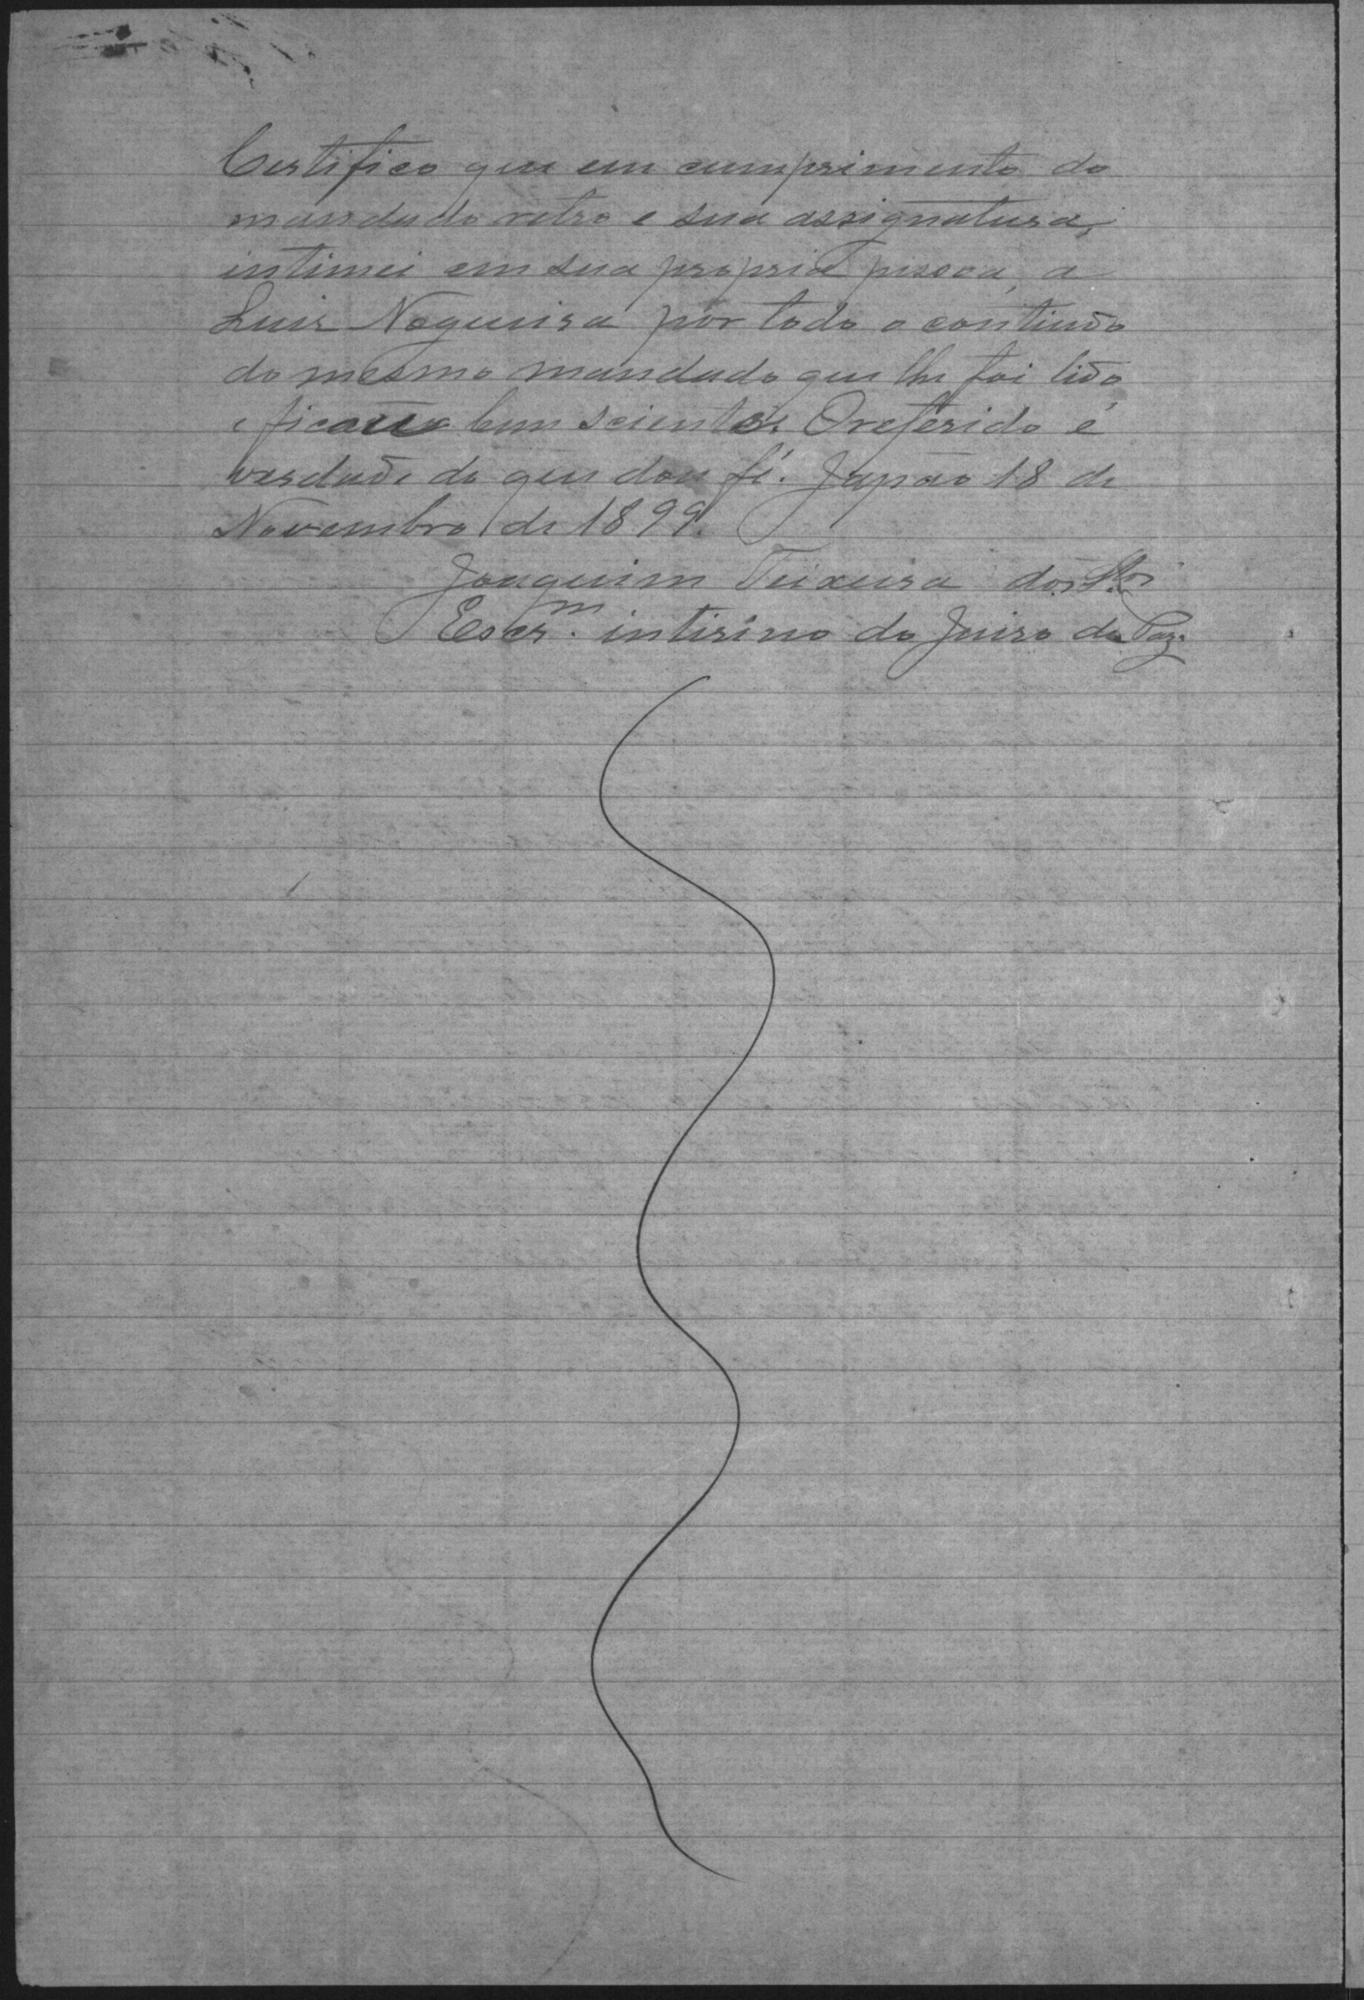 Certifico que em cumprimento do
mandado retro e sua assignatura,
intimei em sua propria pessoa, a
Luis Nogueira por todo o contiudo
do mesmo mandado que lhe foi lido
e ficou bem sciente. O referido é
verdade do que dou fé. Japão 18 de
Novembro de 1899.
Joaquim Teixeira dos Stos
Escrm. intirino do Juiso de Paz.